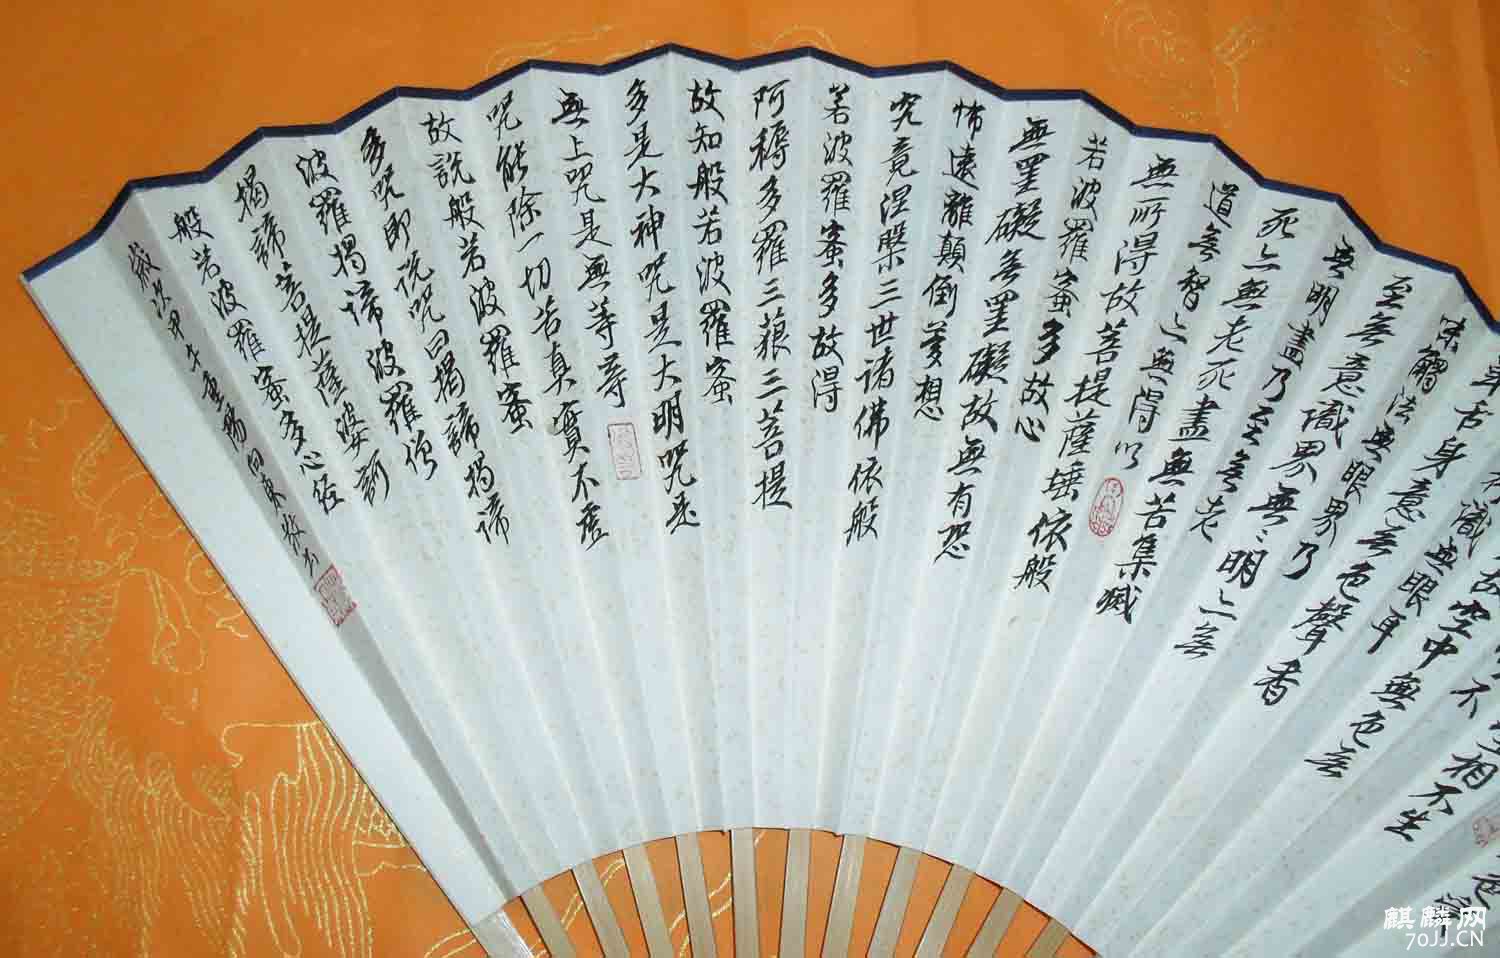 空相不生
不
故空中無色無
識無眼耳
舌身意無色聲香
味觸法無眼界乃
至無意識界無、明亦無
無明盡乃至無老
死亦無老死盡無苦集滅
道無智亦無得以
無所得故菩提薩埵依般
若波羅蜜多故心
無罣礙無罣礙故無有恐
怖遠離顛倒夢想
究竟涅槃三世諸佛依般
若波羅蜜多故得
阿耨多羅三藐三菩提
故知般若波羅蜜
多是大神咒是大明咒是
無上咒是無等等
咒能除一切苦真實不虛
故說般若波羅蜜
多咒即說咒曰揭諦揭諦
波羅揭諦波羅僧
揭諦菩提薩婆訶
般若波羅蜜多心經
歲次甲午重陽向東敬書
麒麟网
70JJ.CN